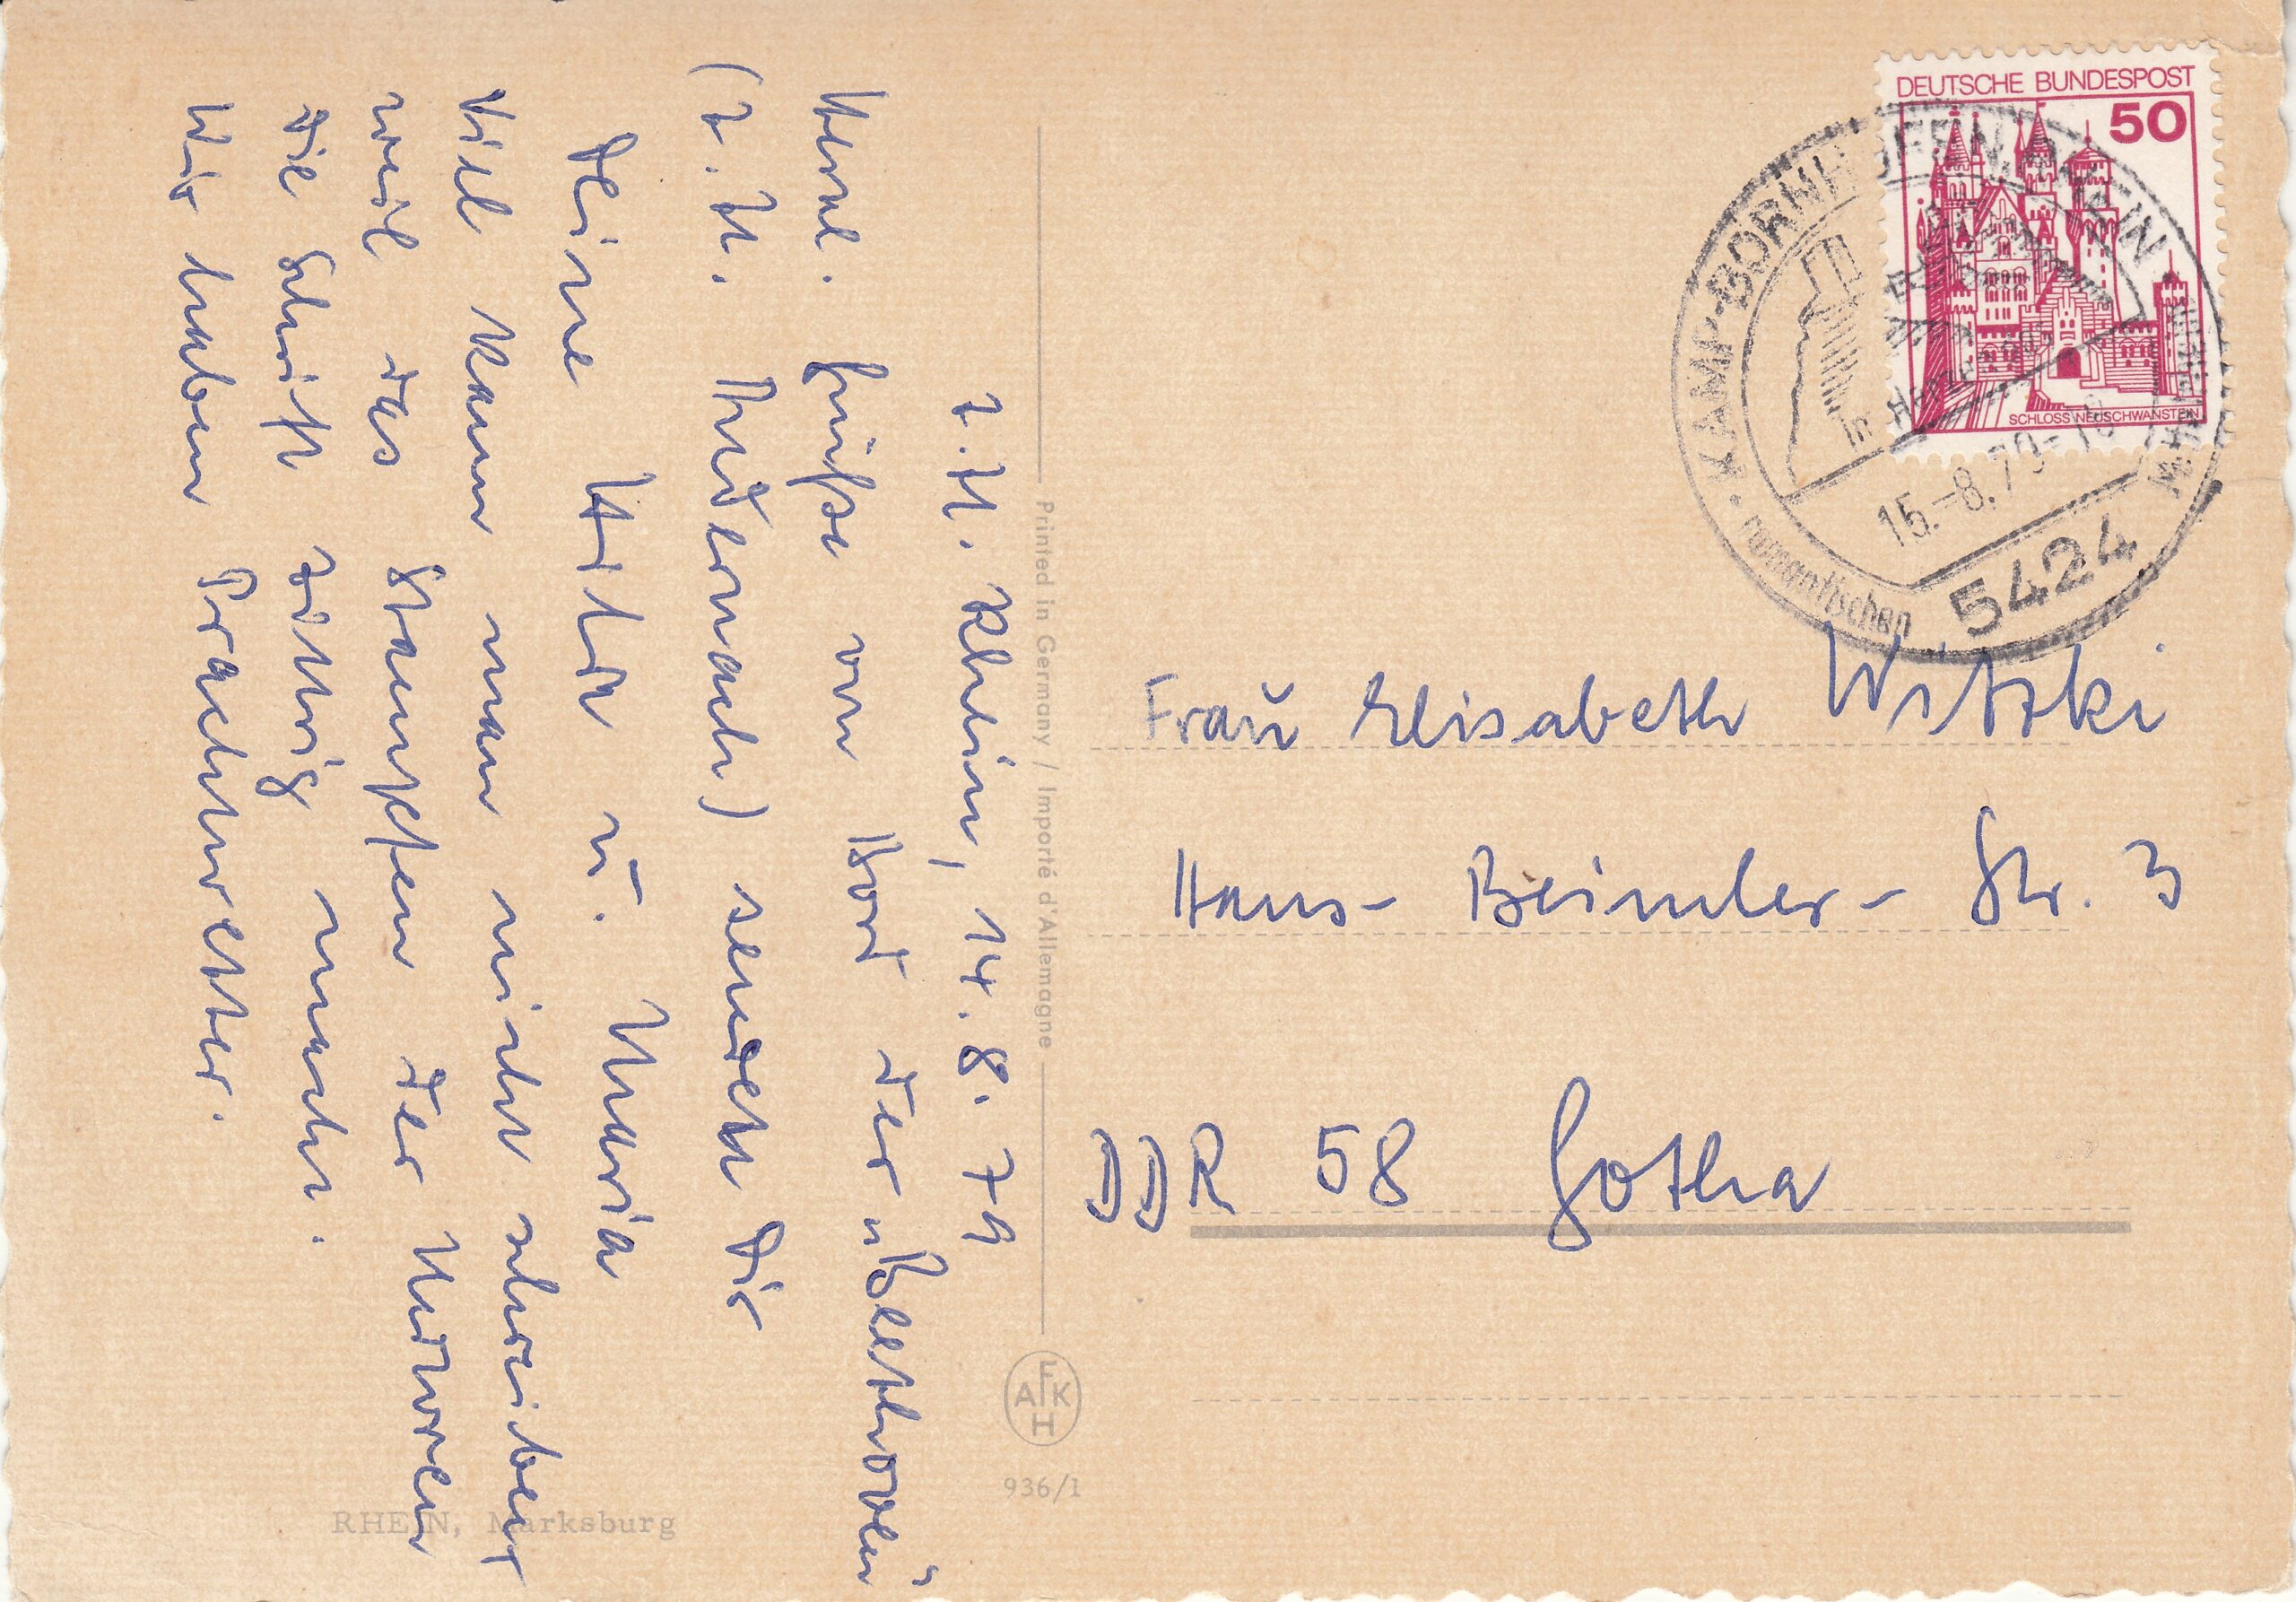 z. Zt. Rhein, 14.8.79
Herzl. Grüße von Bord der "Beethoven"
(z. Zt. Andernach) sendet Dir
Deine u. Maria
Viel kann man nicht schreiben
weil das Stampfen der Motoren
die Schrift zittrig macht.
Wir haben Prachtwetter.
RHEIN, Marksburg
Printed in Germany / Importé d'Allemagne
AFKH
936/1
DEUTSCHE BUNDESPOST
50
SCHLOSS NEUSCHWANSTEIN
KAMP-BORNHOFEN, RHEIN
15.-8.79-
5424
romantischen
Frau Elisabeth Witzki
Hans-Beimler-Str. 3
DDR 58 Gotha